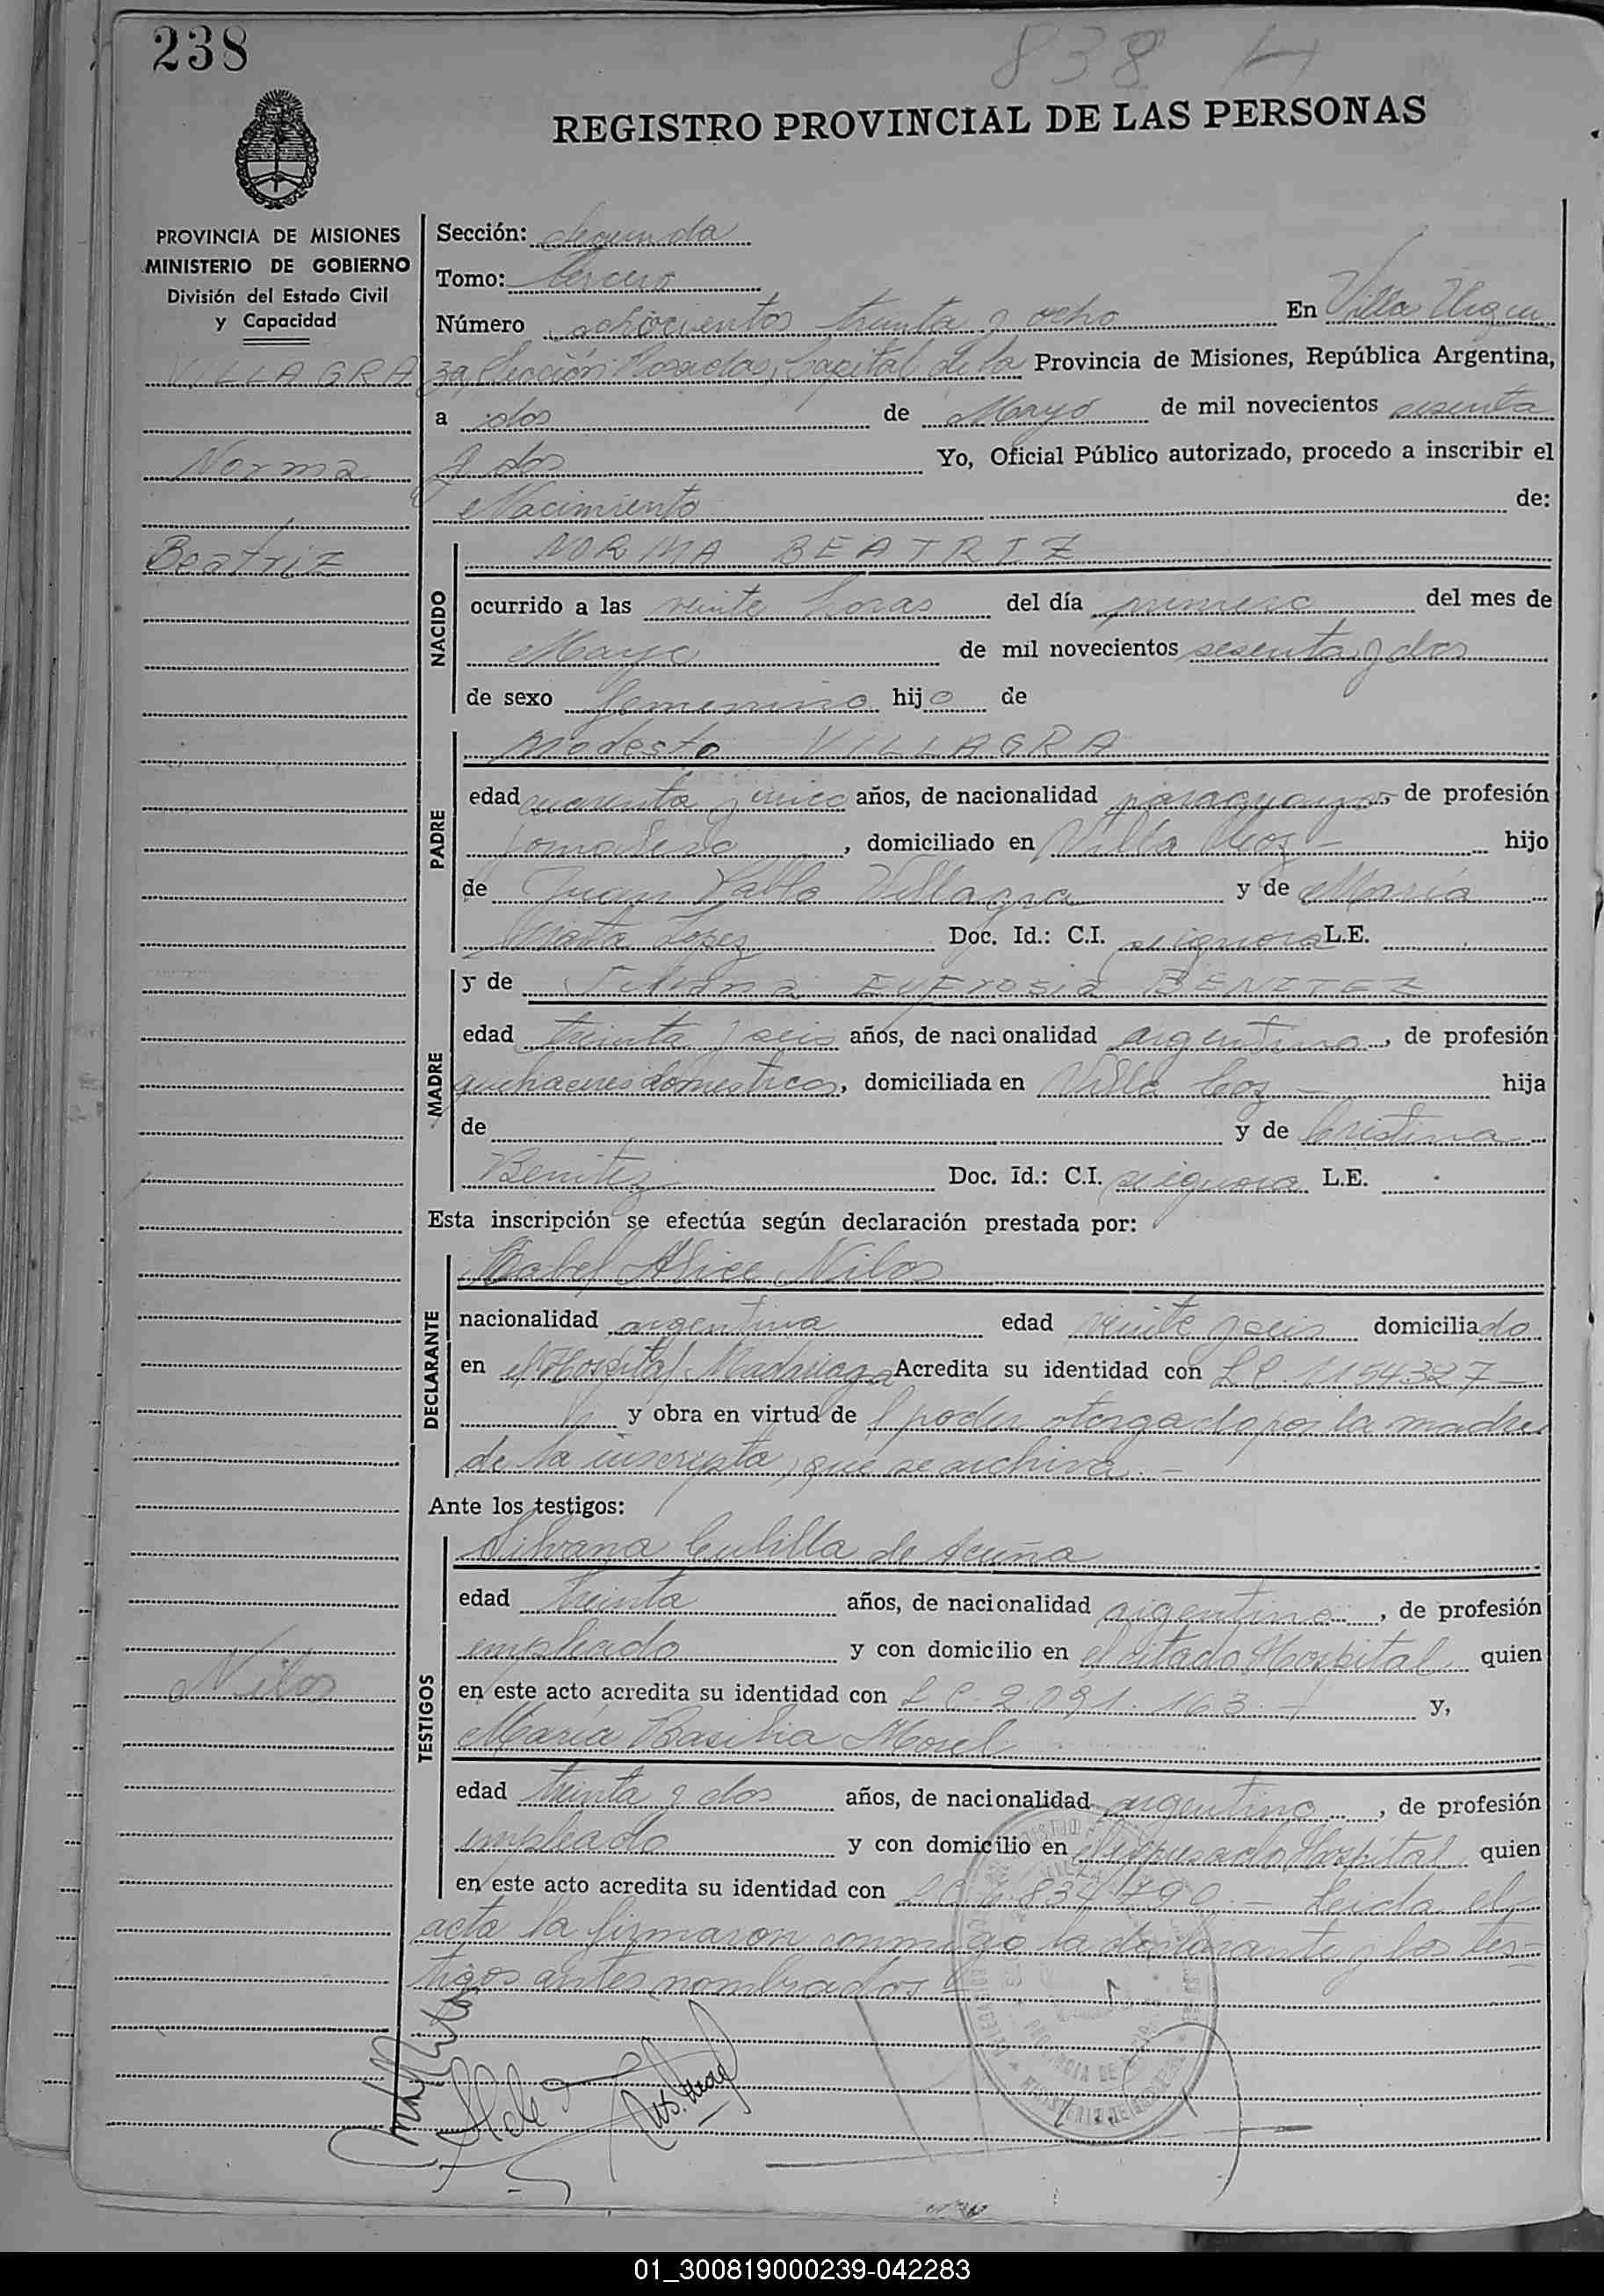 238
838
REGISTRO PROVINCIAL DE LAS PERSONAS
PROVINCIA DE MISIONES
MINISTERIO DE GOBIERNO
División del Estado Civil
y Capacidad
VILLAGRA
Norma
Beatriz
Nilos
Sección: Segunda
Tomo: tercero
Número ochocientos treinta y ocho En Villa Urquiza
3a, Sección Posadas, Capital de la Provincia de Misiones, República Argentina,
a dos de Mayo de mil novecientos sesenta
y dos Yo, Oficial Público autorizado, procedo a inscribir el
Nacimiento de:
NACIDO
NORMA BEATRIZ
ocurrido a las veinte horas del día primero del mes de
Mayo de mil novecientos sesenta y dos
de sexo femenino hijo de
PADRE
Modesto VILLAGRA
edad cuarenta y cinco años, de nacionalidad paraguayo, de profesión
jornalero, domiciliado en Villa hijo
de Juan Pablo Villagra y de María
Marta Lopez Doc. Id.: C.I. se ignora L.E.
MADRE
y de Eufrosia BENITEZ
edad treinta y seis años, de nacionalidad argentina, de profesión
quehaceres domesticos, domiciliada en Villa hija
de y de Cristina
Benitez Doc. Id.: C.I. se ignora L.E.
Esta inscripción se efectúa según declaración prestada por:
DECLARANTE
Mabel Alice Nilos
nacionalidad argentina edad veinte y seis domiciliado
en el Hospital Madariaga Acredita su identidad con L.C. 1154327
y obra en virtud de l poder otorgado por la madre
de la inscripta, que se archiva.-
Ante los testigos:
TESTIGOS
Silvana Cubilla de Acuña
edad treinta años, de nacionalidad argentina, de profesión
empleado y con domicilio en el citado Hospital quien
en este acto acredita su identidad con L.C. 2.091.163.- y,
María Basilia Morel
edad treinta y dos años, de nacionalidad argentino, de profesión
empleado y con domicilio en el expresado Hospital quien
en este acto acredita su identidad con L.C. Leida el
acta la firmaron conmigo la declarante y los tes-
tigos antes nombrados
01_300819000239-042283